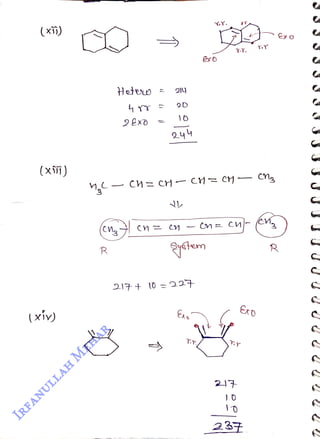 (xii)
r.r. rr
⇒ Exo
Exo r.r. r.r
Hetero = 214
4 rr = 20
2 Exo = 10
244
(xiii)
H₃C – CH = CH – CH = CH – CH₃
⇓
CH₃ – CH = CH – CH = CH – CH₃
R System R
217 + 10 = 227
(xiv)
Exo Exo
⇒ r.r r.r
217
10
10
237
IRFANULLAH MEHAR